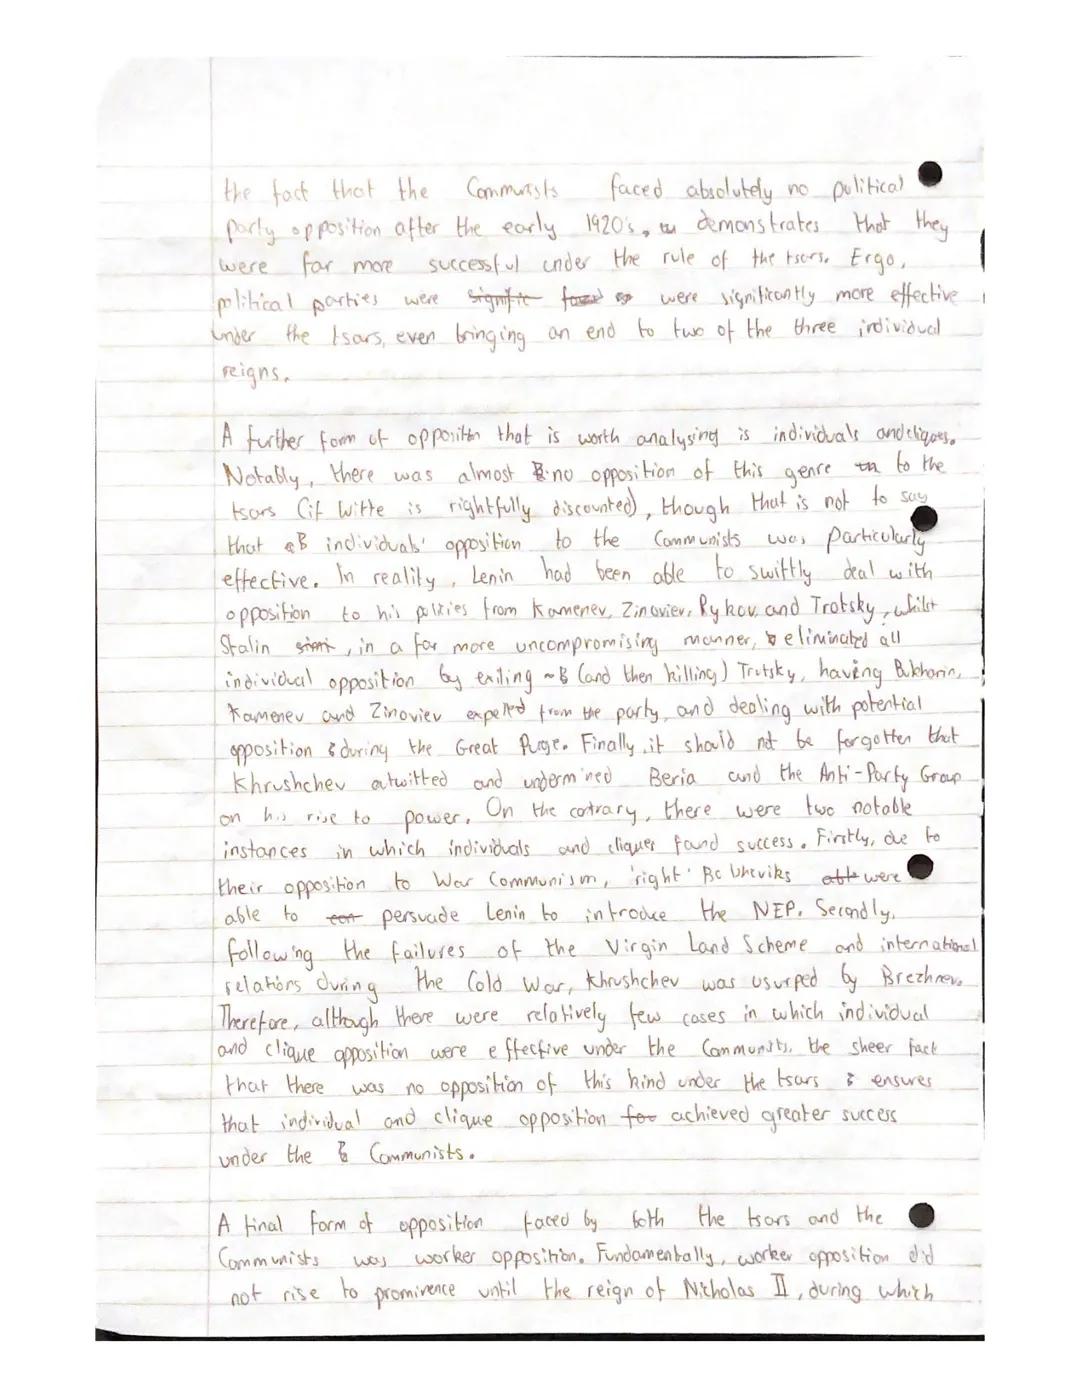 the fact that the Communists faced absolutely no political
party opposition after the early 1920's, demonstrates that they
were far more successful under the rule of the tsars. Ergo,
political parties were were significantly more effective
under the tsars, even bringing an end to two of the three individual
reigns.
A further form of opposition that is worth analysing is individuals and cliques.
Notably, there was almost no opposition of this genre to the
tsars (if Witte is rightfully discounted), though that is not to say
that individuals' opposition to the Communists was particularly
effective. In reality, Lenin had been able to swiftly deal with
opposition to his policies from Kamenev, Zinoviev, Rykov and Trotsky, whilst
Stalin, in a far more uncompromising manner, eliminated all
individual opposition by exiling (and then killing) Trotsky, having Bukharin,
Kamenev and Zinoviev expelled from the party, and dealing with potential
opposition during the Great Purge. Finally, it should not be forgotten that
Khrushchev outwitted and undermined Beria and the Anti-Party Group
on his rise to power. On the contrary, there were two notable
instances in which individuals and cliques found success. Firstly, due to
their opposition to War Communism, 'right' Bolsheviks were
able to persuade Lenin to introduce the NEP. Secondly,
following the failures of the Virgin Land Scheme and international
relations during the Cold War, Khrushchev was usurped by Brezhnev.
Therefore, although there were relatively few cases in which individual
and clique opposition were effective under the Communists, the sheer fact
that there was no opposition of this kind under the tsars ensures
that individual and clique opposition achieved greater success
under the Communists.
A final form of opposition faced by both the tsars and the
Communists was worker opposition. Fundamentally, worker opposition did
not rise to prominence until the reign of Nicholas II, during which